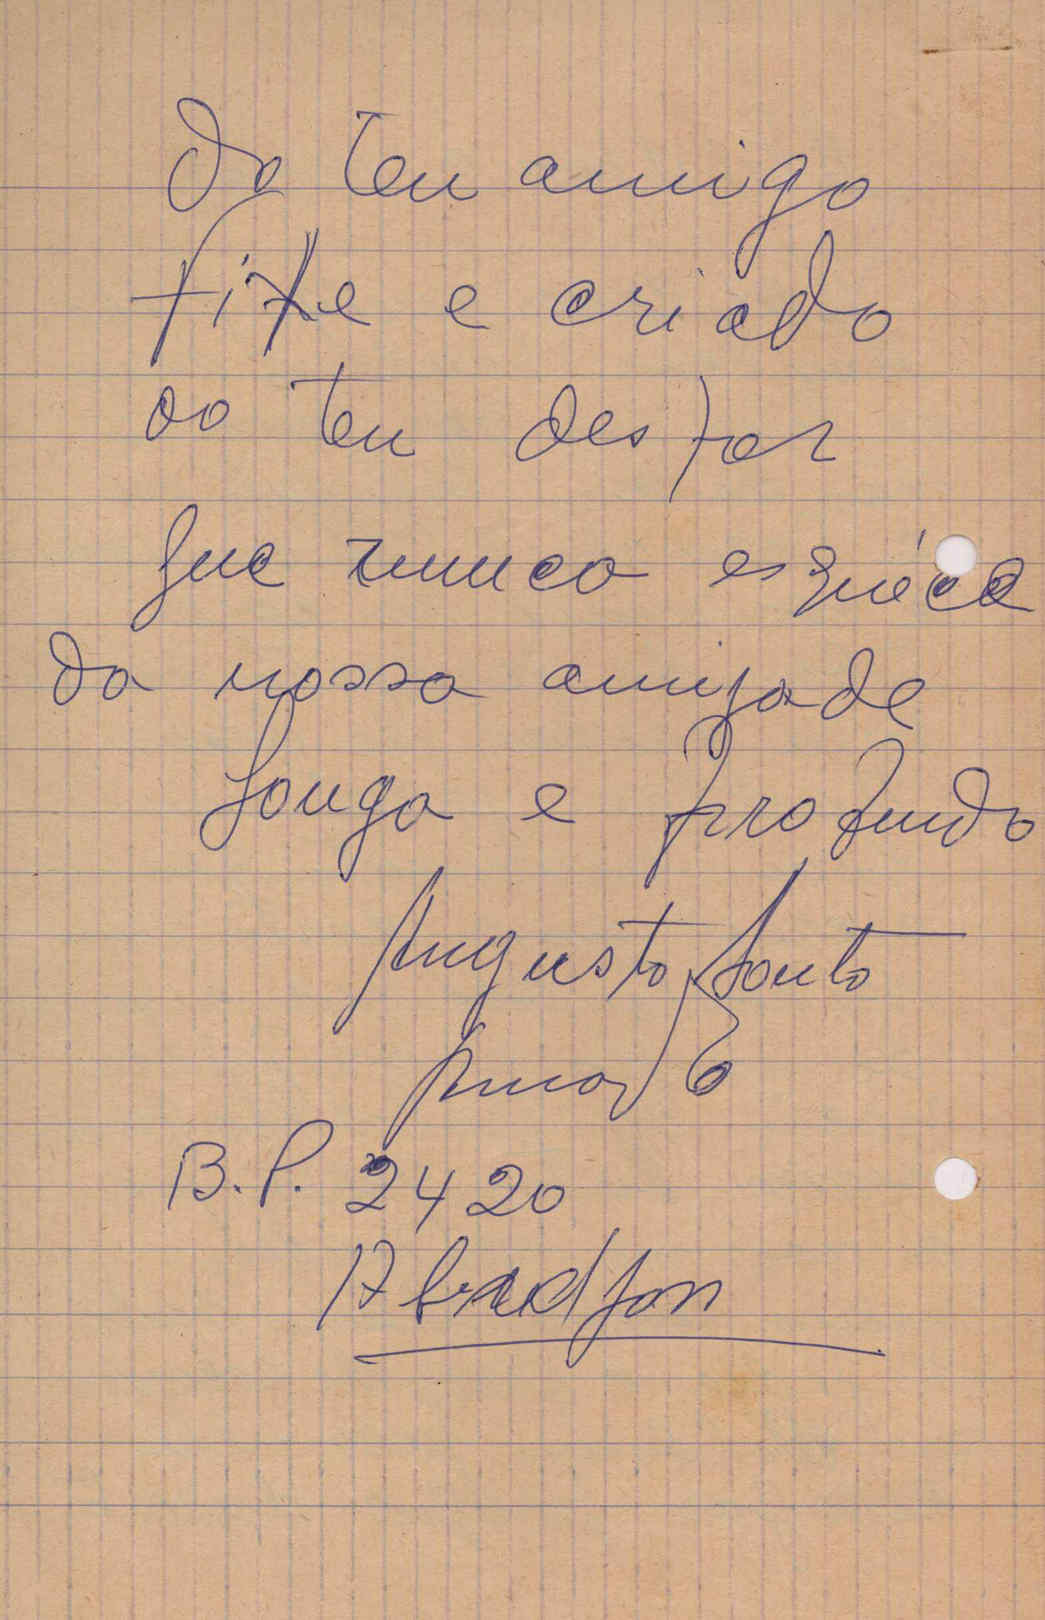 Do teu amigo
fixe e criado
ao teu despor
que nunca esquéce
da nossa amizade
longa e profunda
Augusto Souto
B.P. 2420
Abidjan